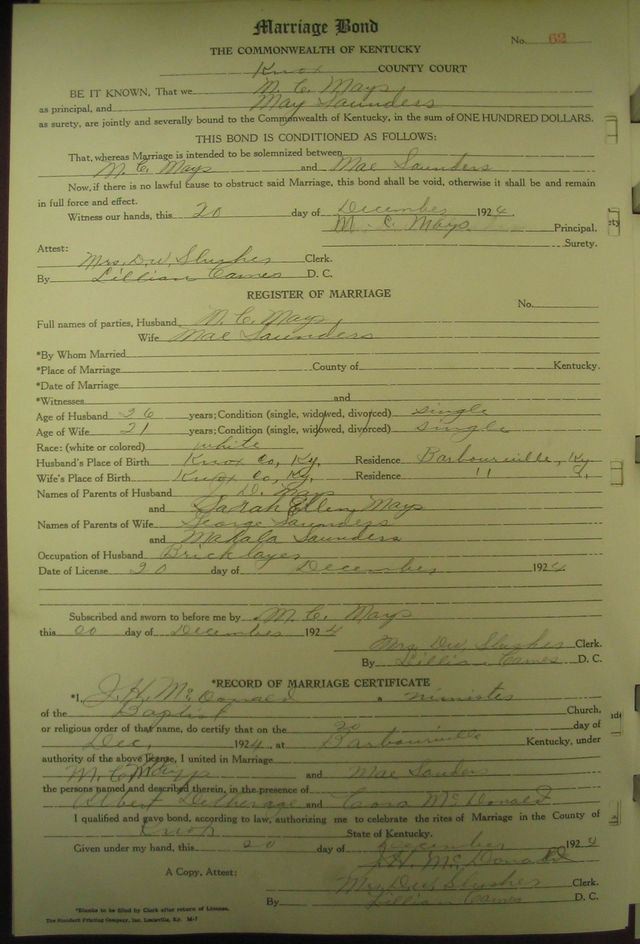 Marriage Bond
No. 62
THE COMMONWEALTH OF KENTUCKY
Knox COUNTY COURT
BE IT KNOWN, That we M. C. Mays
as principal, and May Saunders
as surety, are jointly and severally bound to the Commonwealth of Kentucky, in the sum of ONE HUNDRED DOLLARS.
THIS BOND IS CONDITIONED AS FOLLOWS:
That, whereas Marriage is intended to be solemnized between
M. C. Mays and Mae Saunders
Now, if there is no lawful cause to obstruct said Marriage, this bond shall be void, otherwise it shall be and remain
in full force and effect.
Witness our hands, this 20 day of December 1924.
M. C. Mays Principal.
Surety.
Attest:
Mrs. D.W. Slusher Clerk.
By Lillian D. C.
REGISTER OF MARRIAGE
No.
Full names of parties, Husband M. C. Mays
Wife Mae Saunders
*By Whom Married
*Place of Marriage County of Kentucky.
*Date of Marriage
*Witnesses and
Age of Husband 26 years; Condition (single, widowed, divorced) single
Age of Wife 21 years; Condition (single, widowed, divorced) single
Race: (white or colored) white
Husband's Place of Birth Knox Co, Ky. Residence Barbourville, Ky
Wife's Place of Birth Knox Co, Ky. Residence " "
Names of Parents of Husband D. Mays
and Sarah Ellen Mays
Names of Parents of Wife George Saunders
and Mahala Saunders
Occupation of Husband Brick layer
Date of License 20 day of December 1924
Subscribed and sworn to before me by M. C. Mays
this 20 day of December 1924
Mrs. D.W. Slusher Clerk.
By Lillian D. C.
*RECORD OF MARRIAGE CERTIFICATE
*I, J. H. McDonald a minister
of the Baptist Church,
or religious order of that name, do certify that on the 20 day of
Dec, 1924, at Barbourville Kentucky, under
authority of the above license, I united in Marriage
M. C. Mays and Mae Sanders
the persons named and described therein, in the presence of
Albert Detherage and Cora McDonald
I qualified and gave bond, according to law, authorizing me to celebrate the rites of Marriage in the County of
Knox State of Kentucky.
Given under my hand, this 20 day of December 1924
J. H. McDonald
A Copy, Attest: Mrs. D.W. Slusher Clerk.
By Lillian D. C.
*Blanks to be filled by Clerk after return of License.
The Standard Printing Company, Inc. Louisville, Ky. M-7